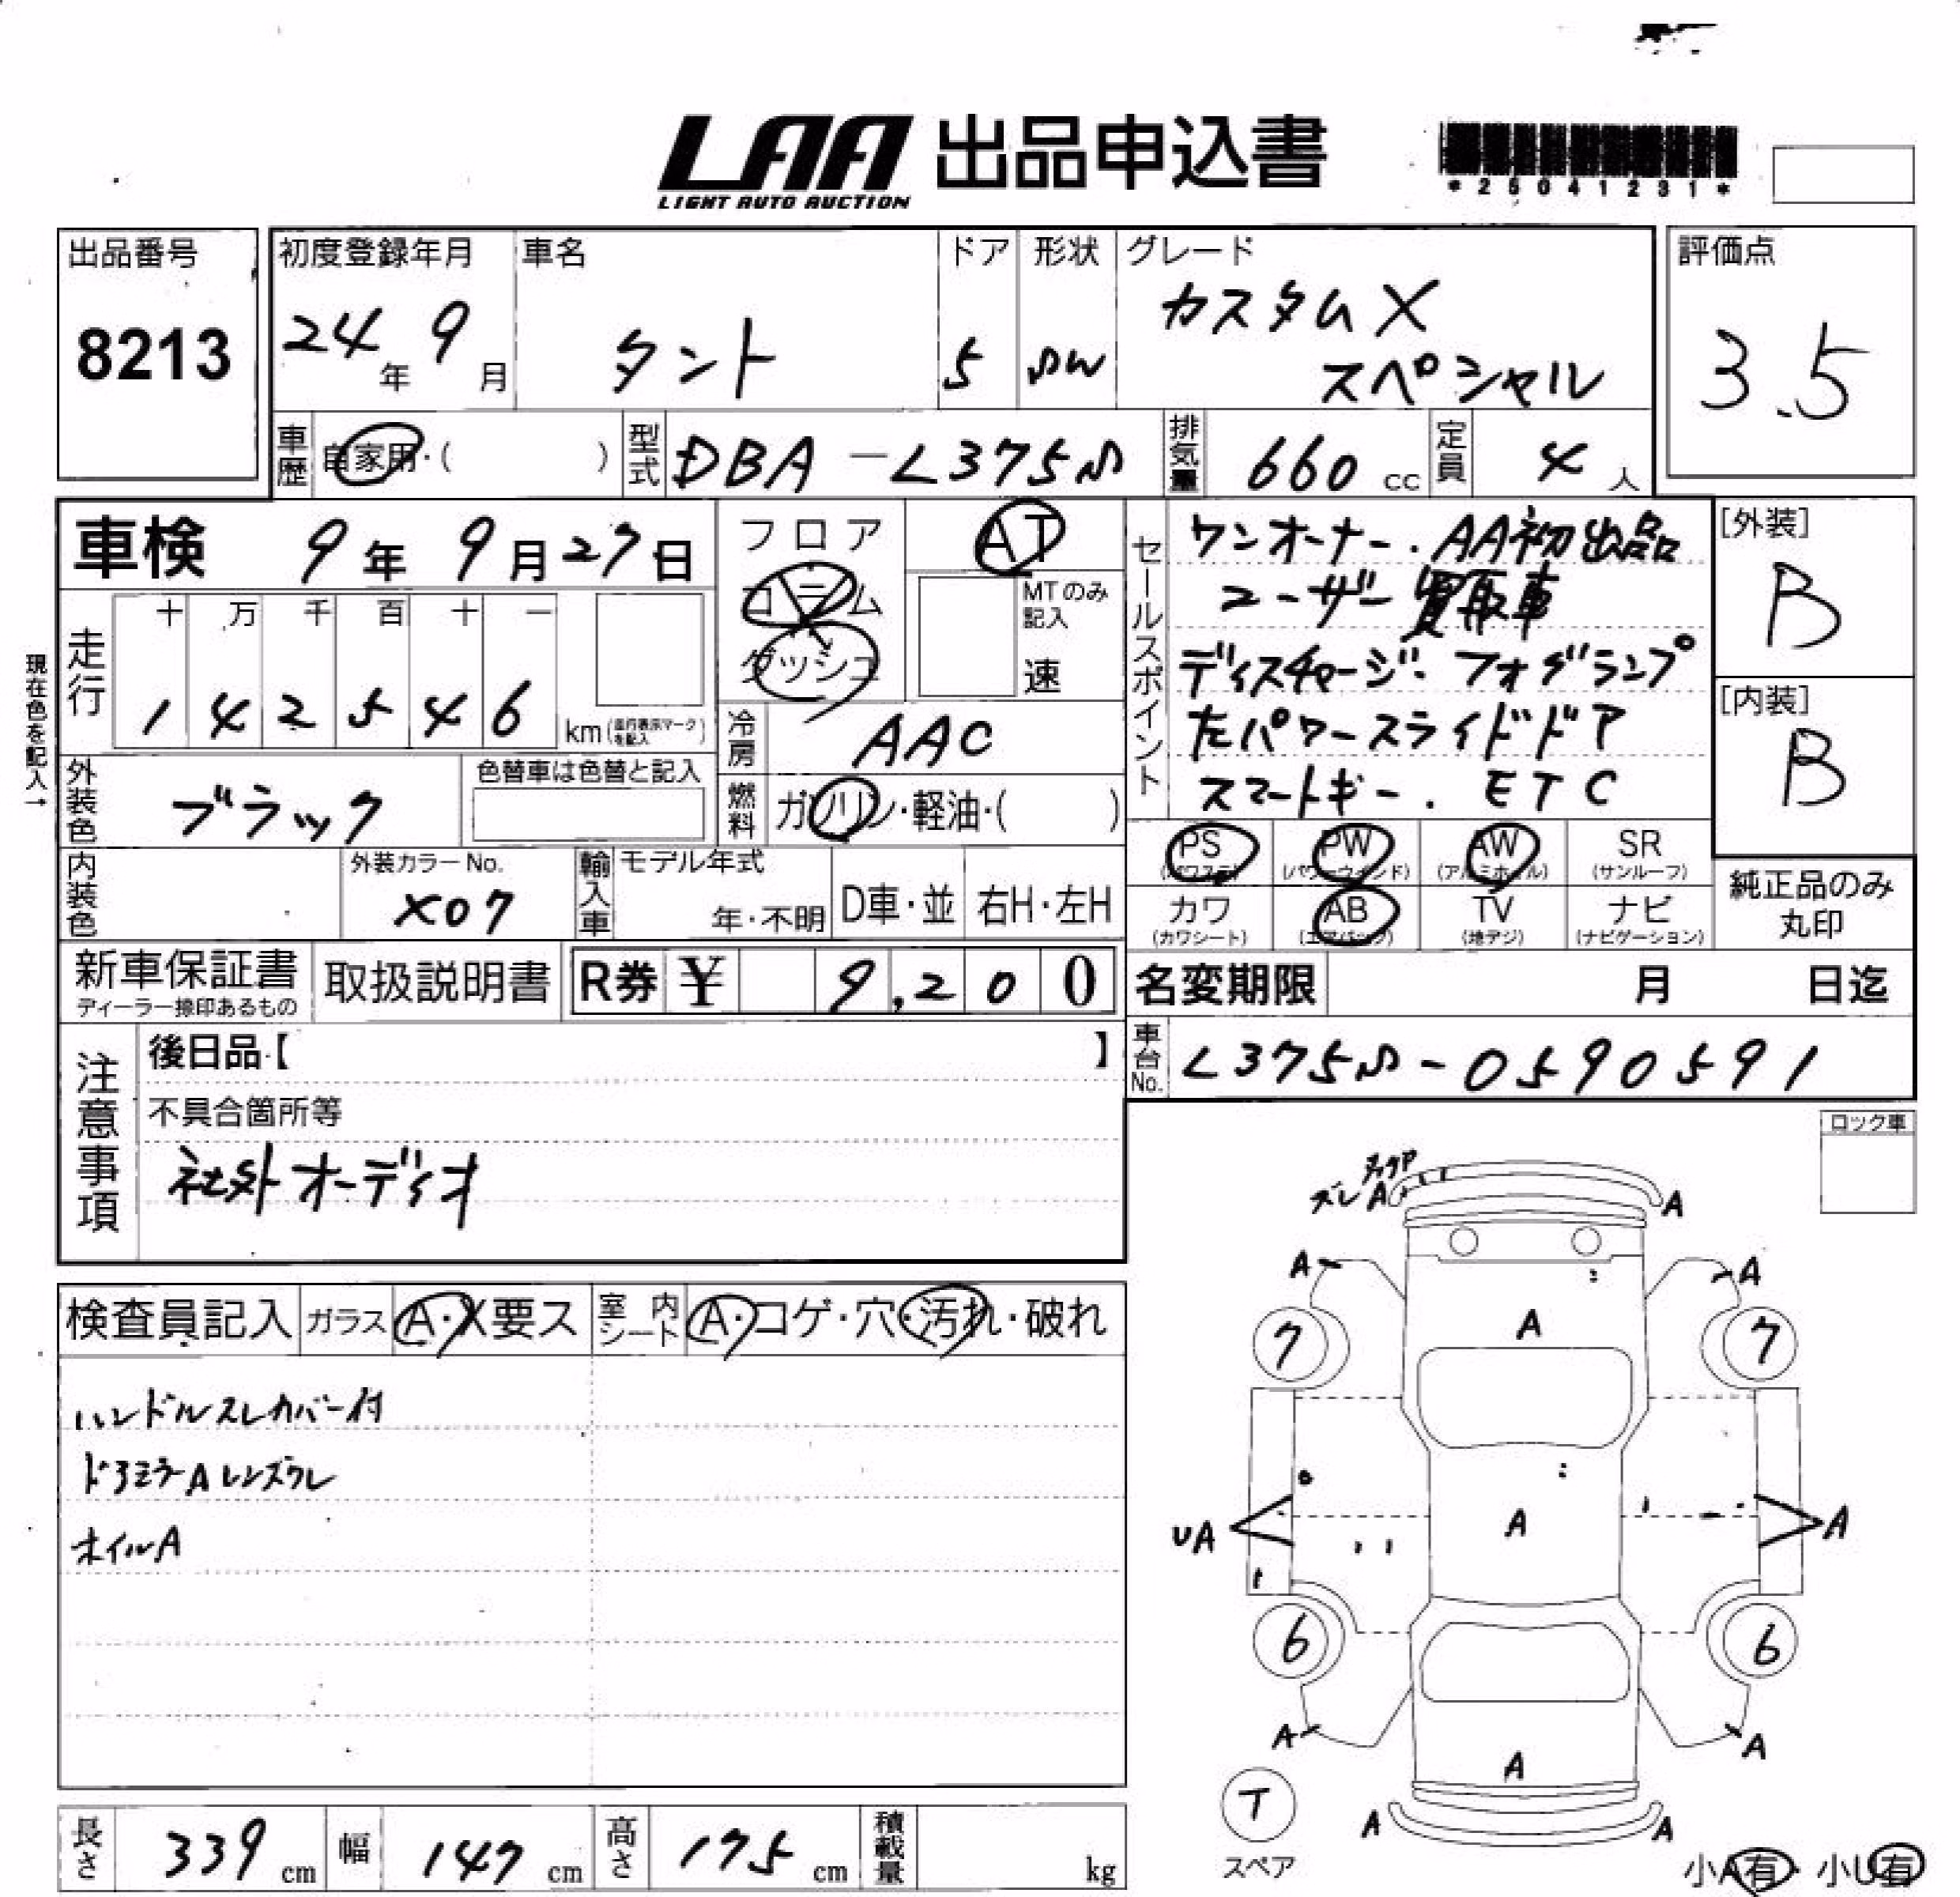 LAA 出品申込書
LIGHT AUTO AUCTION
*25041231*
出品番号
8213
初度登録年月
24年 9月
車名
タント
ドア
5
形状
SW
グレード
カスタムX
スペシャル
評価点
3.5
車歴
自家用・( )
型式
DBA-L375S
排気量
660 cc
定員
4 人
車検 9年 9月27日
フロア
コラム
ダッシュ
AT
MTのみ記入
速
セールスポイント
ワンオーナー.AA初出品
ユーザー買取車
ディスチャージ.フォグランプ
左パワースライドドア
スマートキー.ETC
[外装]
B
[内装]
B
現在色を記入→
走行
十 万 千 百 十 一
1 4 2 5 4 6
km(走行表示マークを記入)
冷房
AAC
外装色
ブラック
色替車は色替と記入
燃料
ガソリン・軽油・( )
PS
(パワステ)
PW
(パワーウインド)
AW
(アルミホイル)
SR
(サンルーフ)
カワ
(カワシート)
AB
(エアバック)
TV
(地デジ)
ナビ
(ナビゲーション)
純正品のみ
丸印
内装色
外装カラーNo.
X07
輸入車
モデル年式
年・不明
D車・並
右H・左H
新車保証書
ディーラー捺印あるもの
取扱説明書
R券 ¥ 9,200
名変期限 月 日迄
車台No.
L375S-0590591
注意事項
後日品【 】
不具合箇所等
社外オーディオ
ロック車
検査員記入
ガラス
A・X要ス
室内シート
A・コゲ・穴・汚れ・破れ
ハンドルスレカバー付
ドアミラーAレンズクレ
ホイルA
ズレ A
A
A
A
A
7
7
A
UA
A
6
6
A
A
A
A
A
T
スペア
小A有・小U有
長さ
339 cm
幅
147 cm
高さ
175 cm
積載量
kg